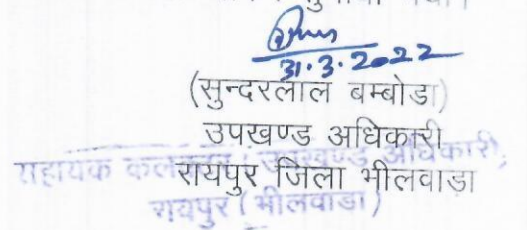 31.3.2022
(सुन्दरलाल बम्बोडा)
उपखण्ड अधिकारी
रायपुर जिला भीलवाडा
सहायक कलक्टर, उपखण्ड अधिकारी,
रायपुर (भीलवाडा)